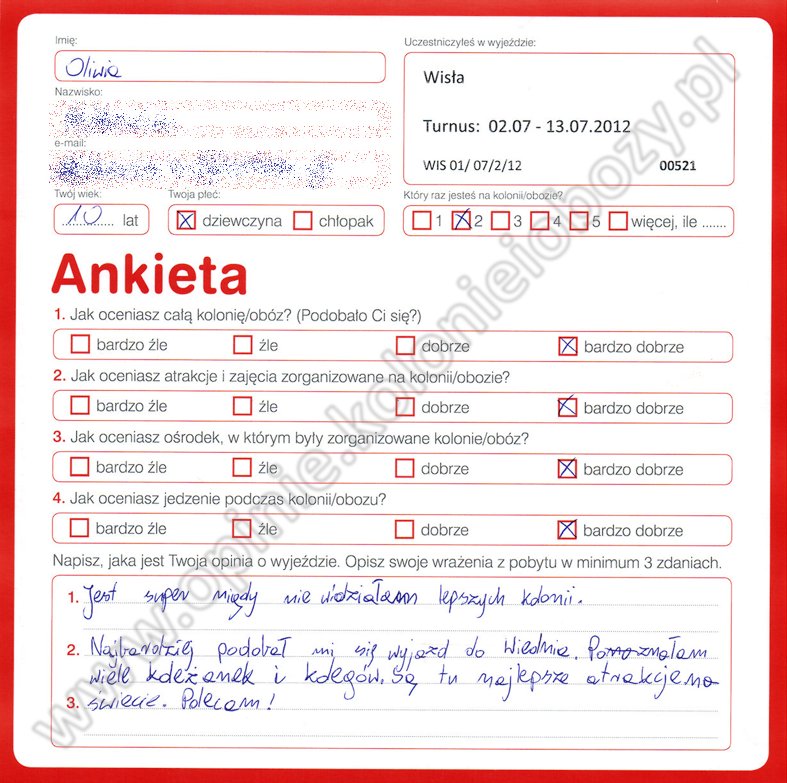 Imię:
Oliwia
Uczestniczyłeś w wyjeździe:
Wisła
Turnus: 02.07 - 13.07.2012
WIS 01/ 07/2/12 00521
Nazwisko:
e-mail:
Twój wiek:
10 lat
Twoja płeć:
dziewczyna chłopak
Który raz jesteś na kolonii/obozie?
1 2 3 4 5 więcej, ile .......
Ankieta
1. Jak oceniasz całą kolonię/obóz? (Podobało Ci się?)
bardzo źle źle dobrze bardzo dobrze
2. Jak oceniasz atrakcje i zajęcia zorganizowane na kolonii/obozie?
bardzo źle źle dobrze bardzo dobrze
3. Jak oceniasz ośrodek, w którym były zorganizowane kolonie/obóz?
bardzo źle źle dobrze bardzo dobrze
4. Jak oceniasz jedzenie podczas kolonii/obozu?
bardzo źle źle dobrze bardzo dobrze
Napisz, jaka jest Twoja opinia o wyjeździe. Opisz swoje wrażenia z pobytu w minimum 3 zdaniach.
1. Jest super nigdy nie widziałam lepszych kolonii.
2. Najbardziej podobał mi się wyjazd do Wiednia. Poznałam
wiele koleżanek i kolegów. Są tu najlepsze atrakcje na
3. świecie. Polecam!
www.opinie.kolonieiobozy.pl